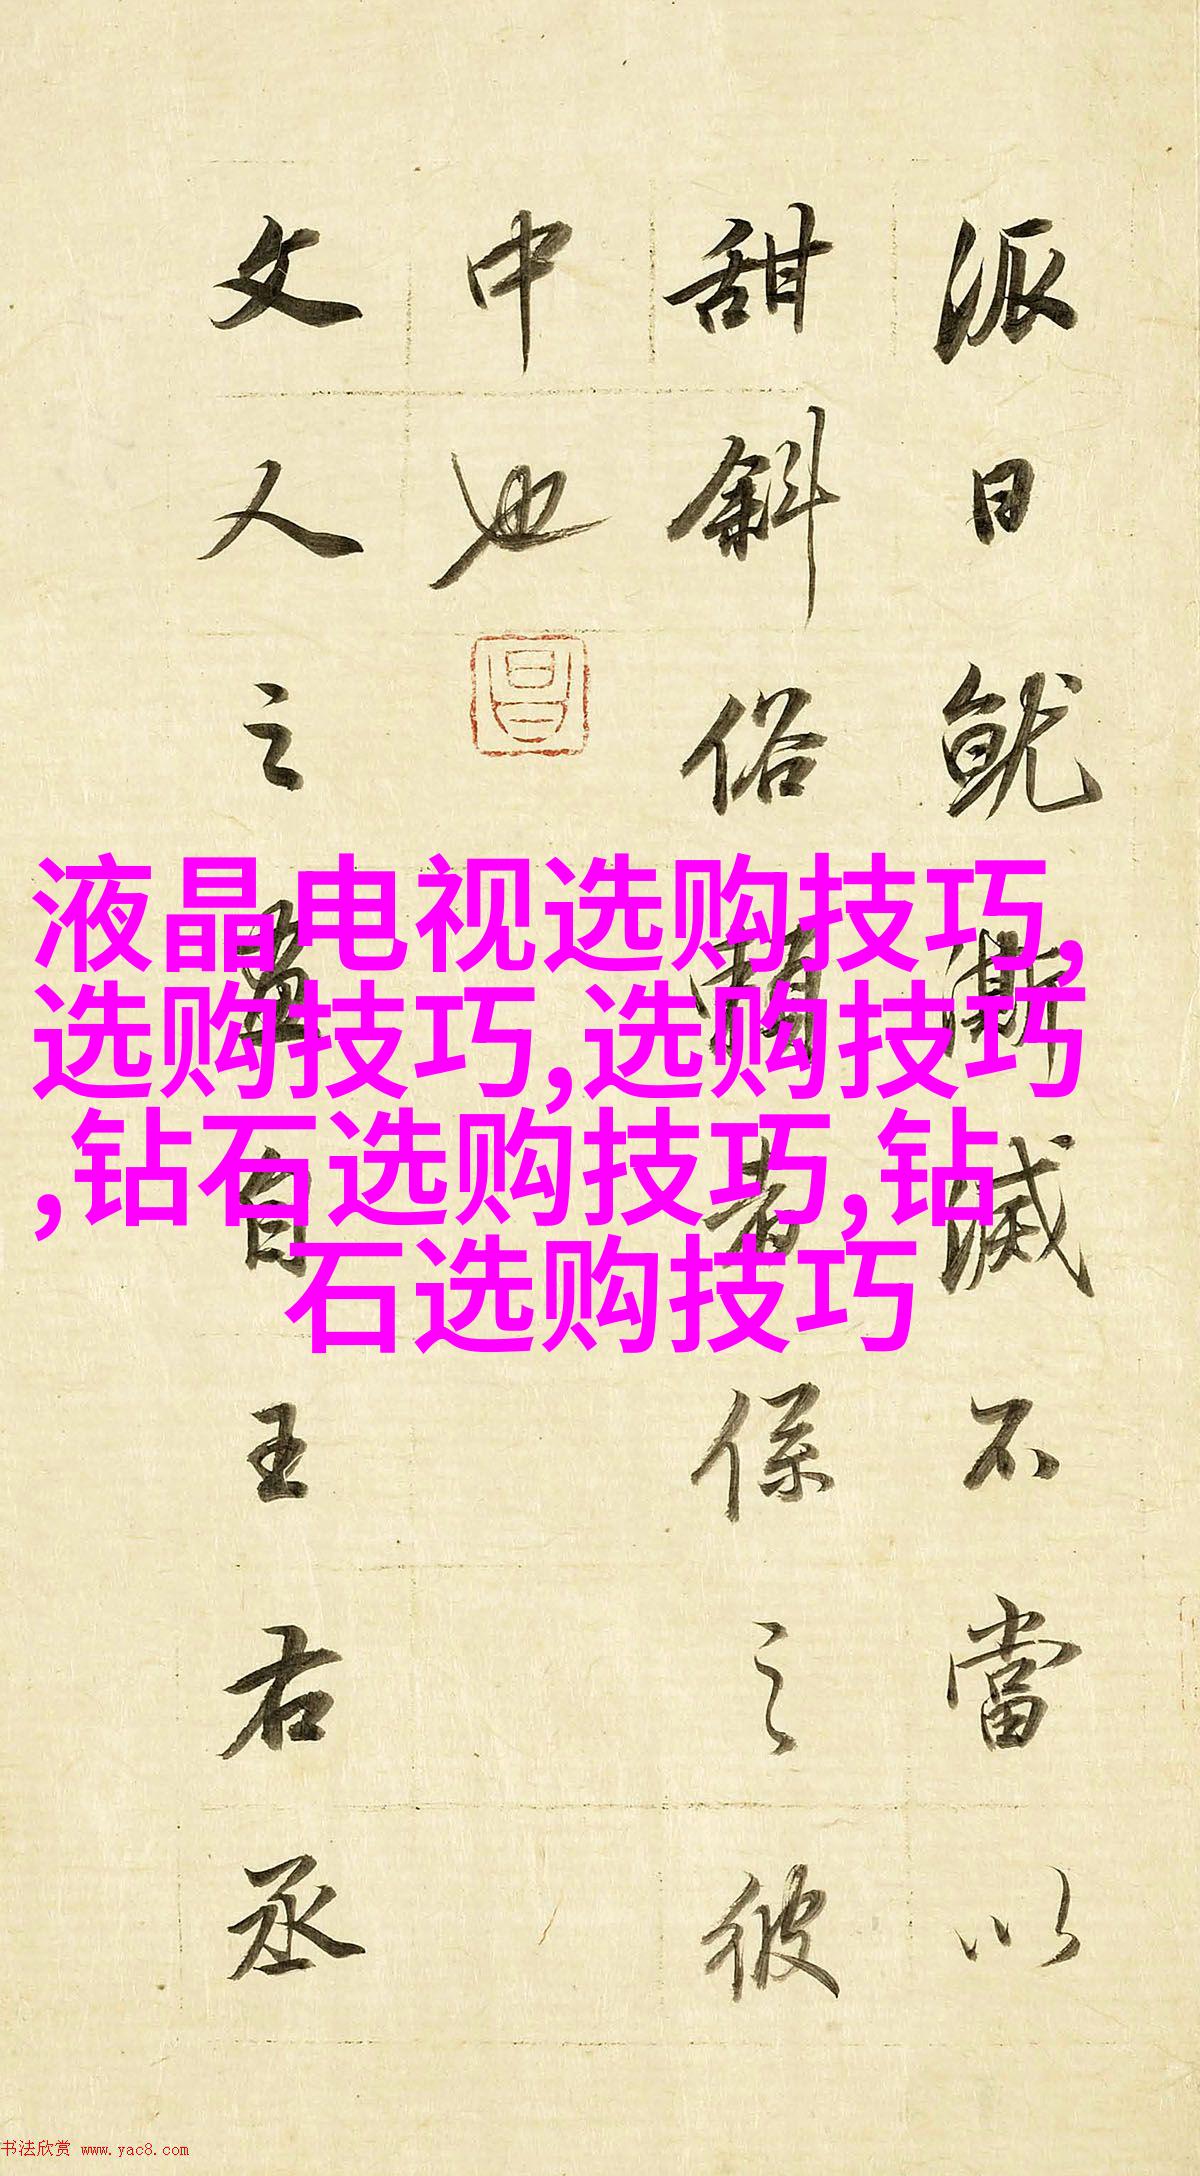 派日就澌滅不當以
甜斜俗賴者係之彼
中也
昌
文人之畫自王右丞
液晶电视选购技巧,
选购技巧,选购技巧
,钻石选购技巧,钻
石选购技巧
书法欣赏 www.yac8.com